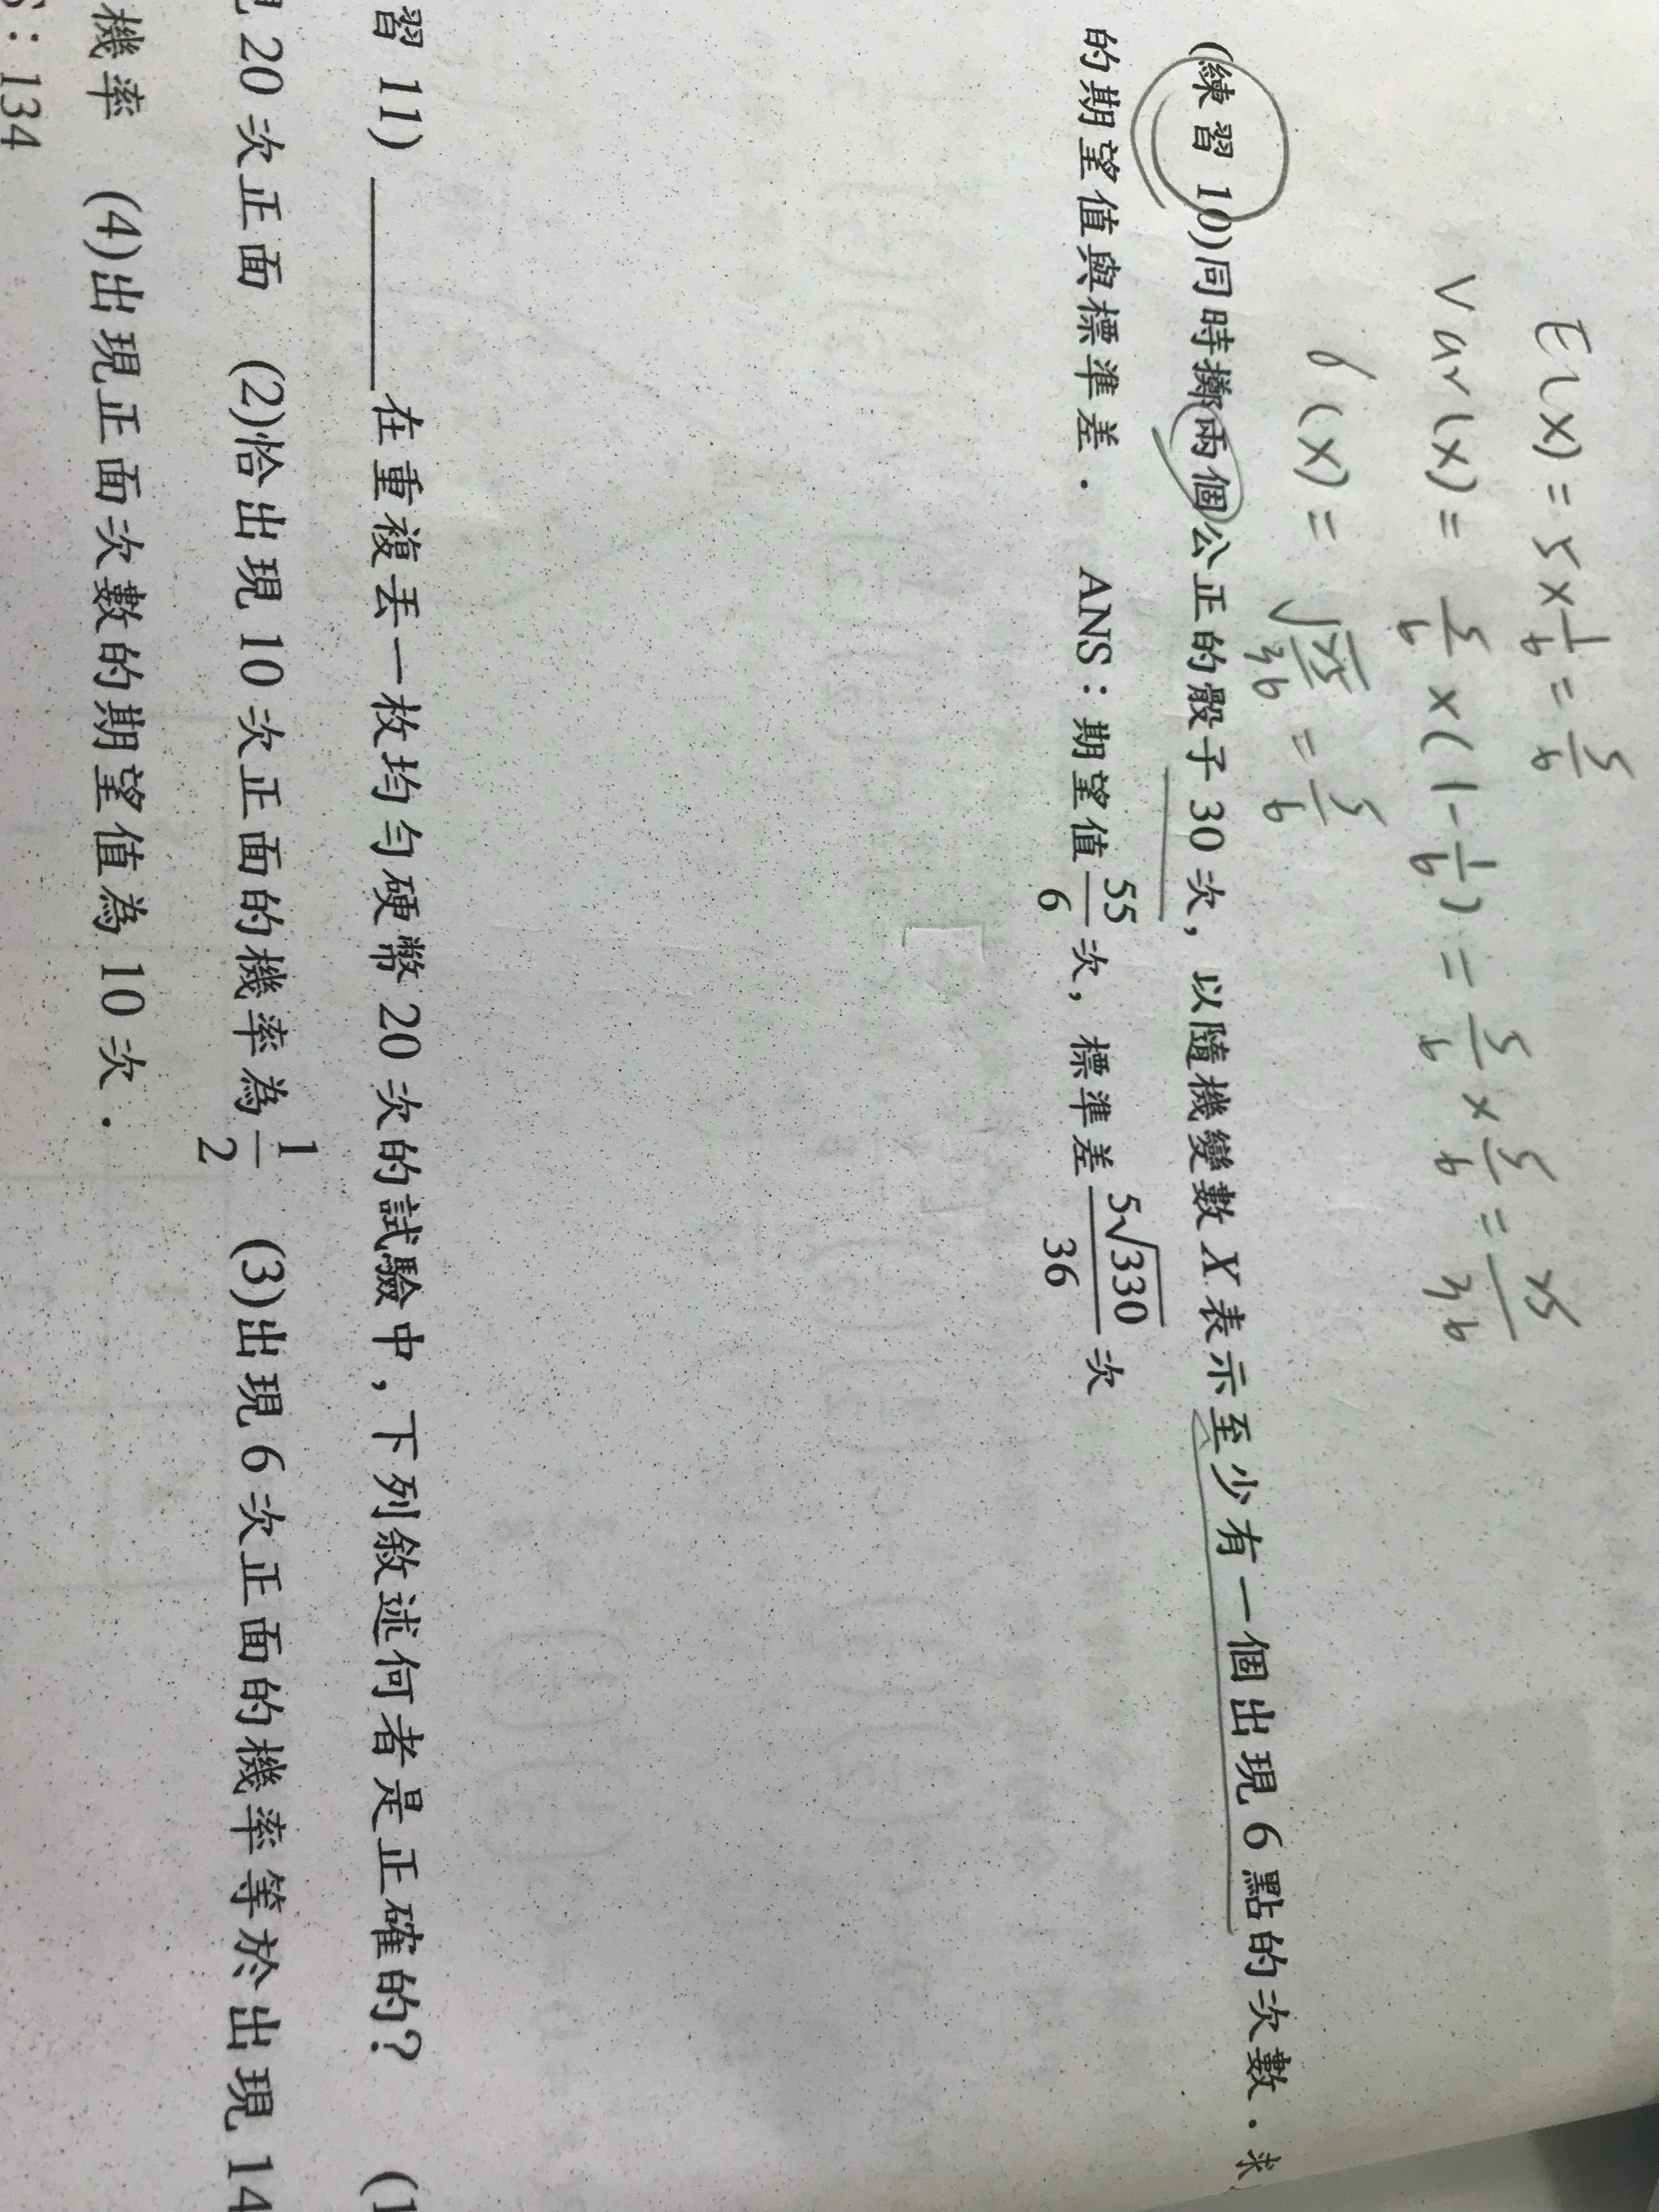 E(X) = 5 × 1/6 = 5/6
Var(X) = 5/6 × (1 - 1/6) = 5/6 × 5/6 = 25/36
(X) = √25/36 = 5/6
(練習 10)同時擲兩個公正的骰子 30 次，以隨機變數 X 表示至少有一個出現 6 點的次數．求
的期望值與標準差． ANS：期望值 55/6 次，標準差 5√330/36 次
習 11) ______ 在重複丟一枚均勻硬幣 20 次的試驗中，下列敘述何者是正確的？ (1
現 20 次正面 (2)恰出現 10 次正面的機率為 1/2 (3)出現 6 次正面的機率等於出現 14
機率 (4)出現正面次數的期望值為 10 次．
S：134